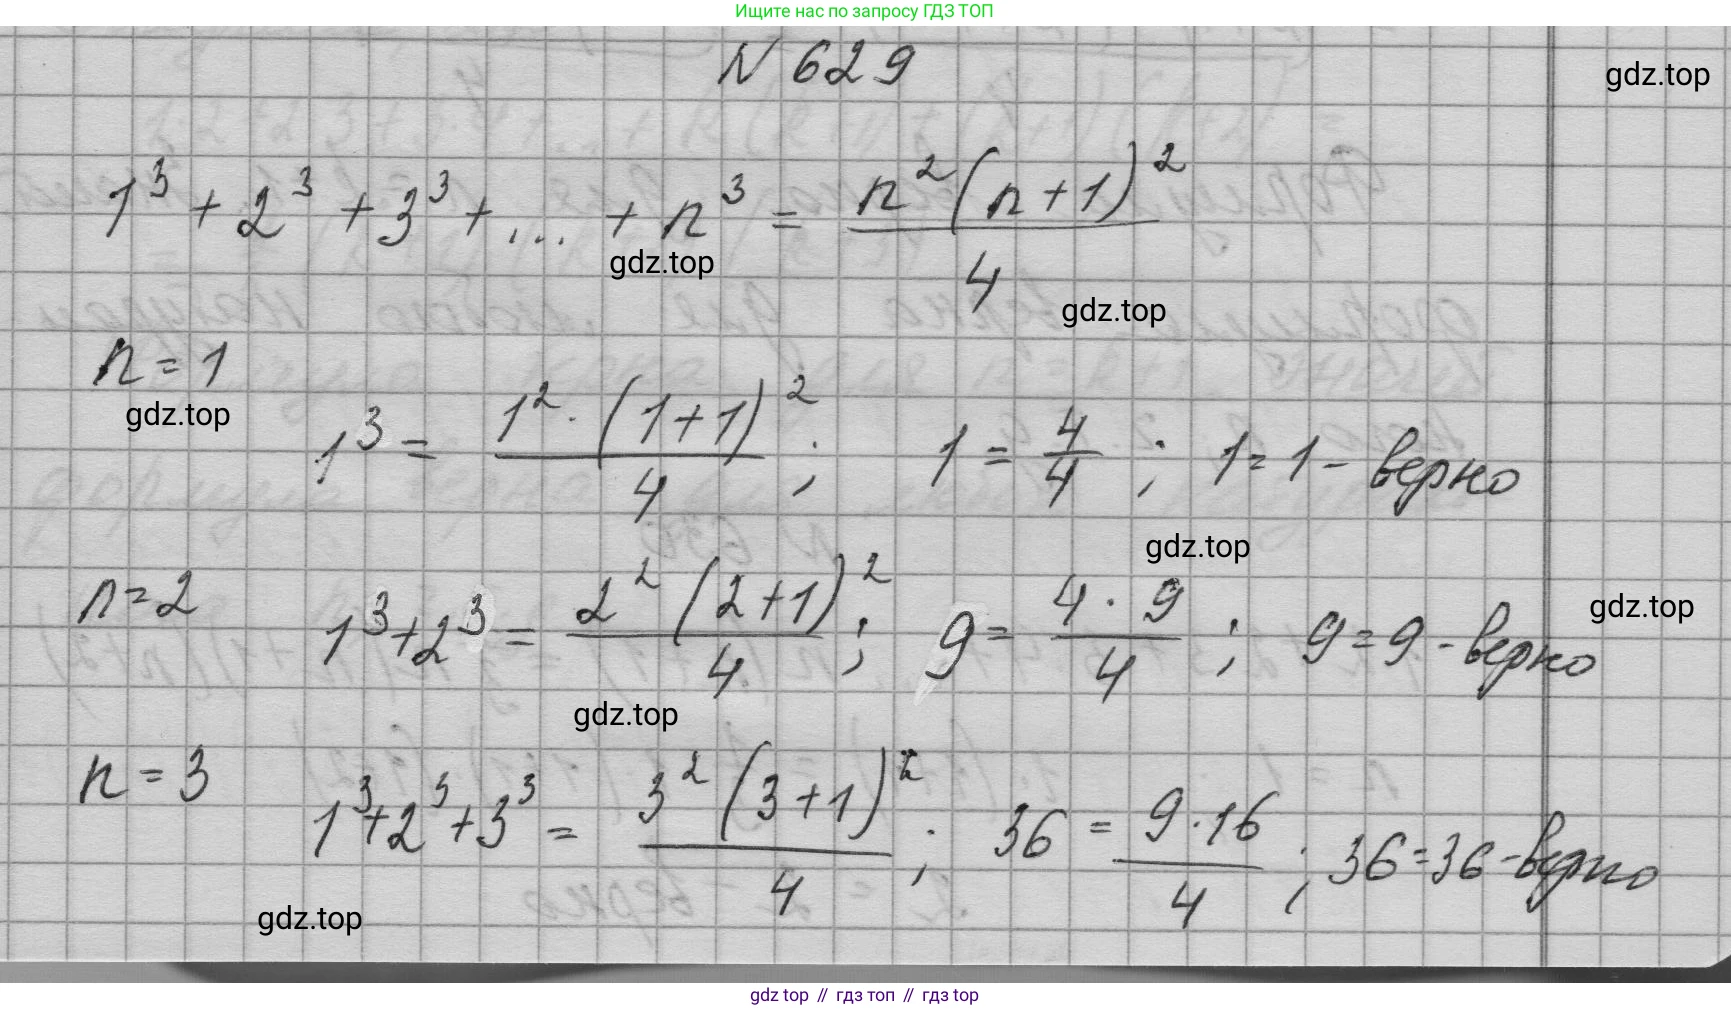 Ищите нас по запросу ГДЗ ТОП
N 629
gdz.top
1³ + 2³ + 3³ + ... + n³ = n²(n+1)²/4
gdz.top
gdz.top
n = 1
gdz.top
1³ = 1² · (1+1)²/4 ; 1 = 4/4 ; 1 = 1 - верно
gdz.top
n = 2 1³+2³ = 2²(2+1)²/4 ; 9 = 4 · 9/4 ; 9 = 9 - верно
gdz.top
gdz.top
n = 3 1³+2³+3³ = 3²(3+1)²/4 ; 36 = 9·16/4 ; 36 = 36 - верно
gdz.top
gdz top // гдз топ // гдз top